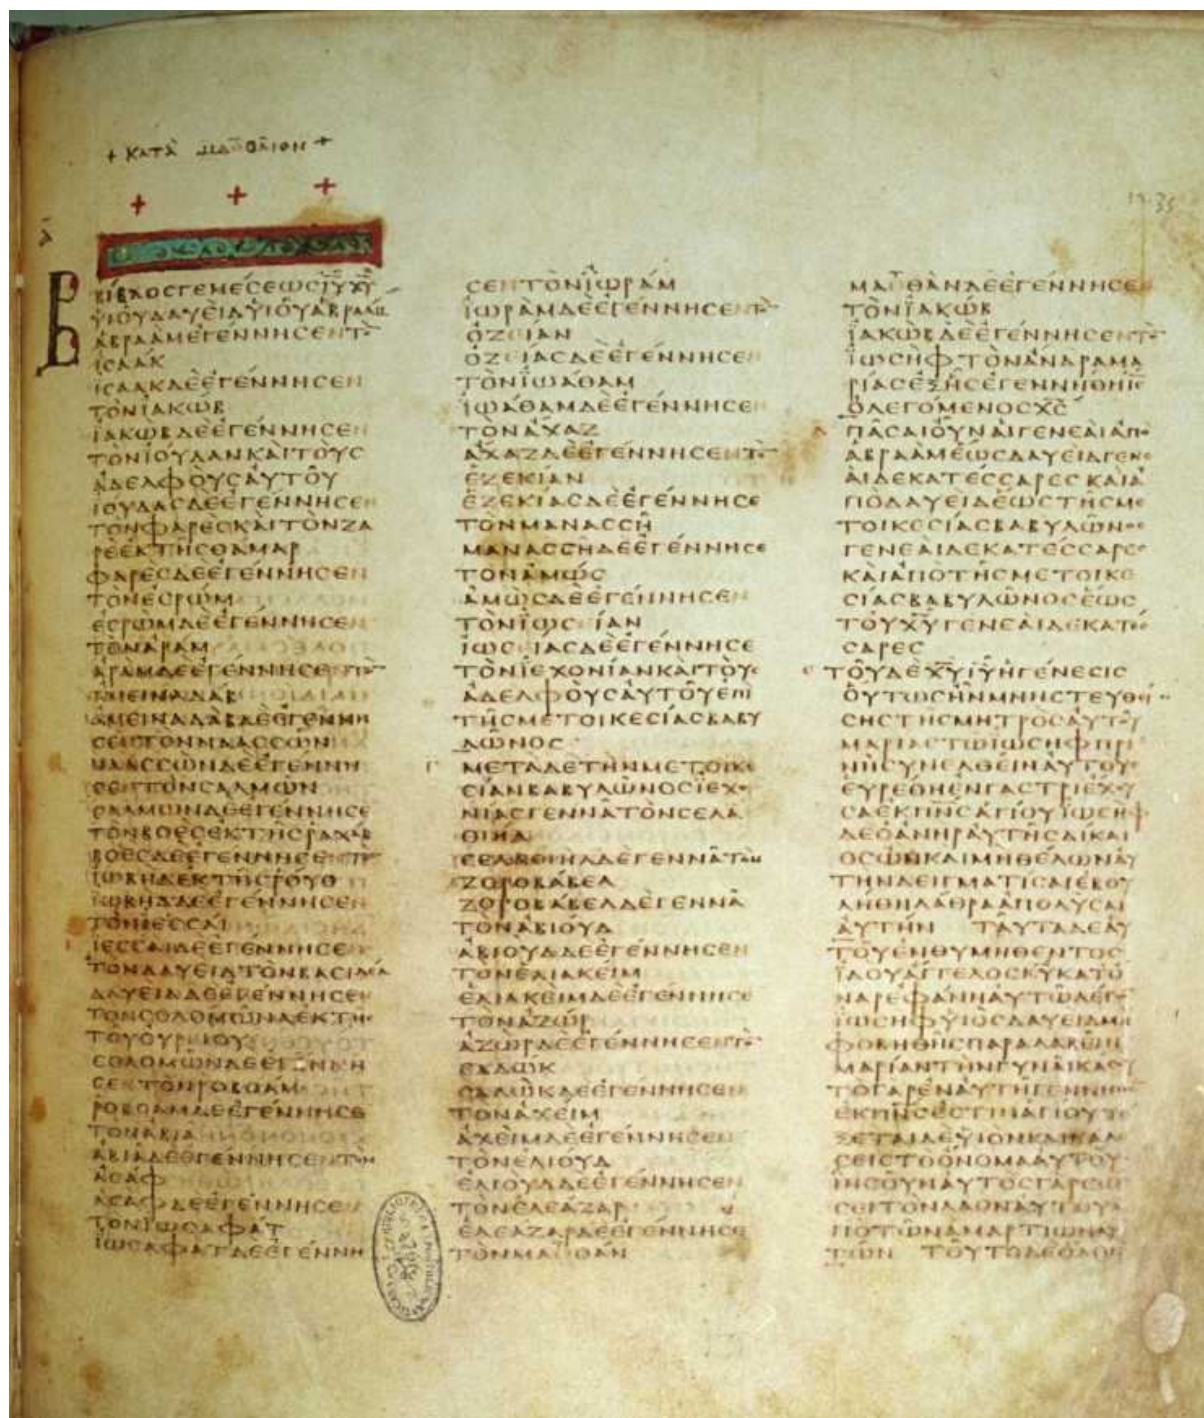 + ΚΑΤΑ ΜΑΘΘΑΙΟΝ +
ΒΙΒΛΟΣΓΕΝΕΣΕΩΣΙΥΧΥ
ΥΙΟΥΔΑΥΕΙΔΥΙΟΥΑΒΡΑΑΜ
ΑΒΡΑΑΜΕΓΕΝΝΗΣΕΝΤΟ
ΙΣΑΑΚ
ΙΣΑΑΚΔΕΕΓΕΝΝΗΣΕΝ
ΤΟΝΙΑΚΩΒ
ΙΑΚΩΒΔΕΕΓΕΝΝΗΣΕΝ
ΤΟΝΙΟΥΔΑΝΚΑΙΤΟΥΣ
ΑΔΕΛΦΟΥΣΑΥΤΟΥ
ΙΟΥΔΑΣΔΕΕΓΕΝΝΗΣΕΝ
ΤΟΝΦΑΡΕΣΚΑΙΤΟΝΖΑ
ΡΕΕΚΤΗΣΘΑΜΑΡ
ΦΑΡΕΣΔΕΕΓΕΝΝΗΣΕΝ
ΤΟΝΕΣΡΩΜ
ΕΣΡΩΜΔΕΕΓΕΝΝΗΣΕΝ
ΤΟΝΑΡΑΜ
ΑΡΑΜΔΕΕΓΕΝΝΗΣΕΝΤΟ
ΑΜΕΙΝΑΔΑΒ
ΑΜΕΙΝΑΔΑΒΔΕΕΓΕΝΝΗ
ΣΕΝΤΟΝΝΑΑΣΣΩΝ
ΝΑΑΣΣΩΝΔΕΕΓΕΝΝΗ
ΣΕΝΤΟΝΣΑΛΜΩΝ
ΣΑΛΜΩΝΔΕΕΓΕΝΝΗΣΕ
ΤΟΝΒΟΕΣΕΚΤΗΣΡΑΧΑΒ
ΒΟΕΣΔΕΕΓΕΝΝΗΣΕΝΤΟ
ΙΩΒΗΔΕΚΤΗΣΡΟΥΘ
ΙΩΒΗΔΔΕΕΓΕΝΝΗΣΕΝ
ΤΟΝΙΕΣΣΑΙ
ΙΕΣΣΑΙΔΕΕΓΕΝΝΗΣΕΝ
ΤΟΝΔΑΥΕΙΔΤΟΝΒΑΣΙΛΕΑ
ΔΑΥΕΙΔΔΕΕΓΕΝΝΗΣΕΝ
ΤΟΝΣΟΛΟΜΩΝΑΕΚΤΗΣ
ΤΟΥΟΥΡΕΙΟΥ
ΣΟΛΟΜΩΝΔΕΕΓΕΝΝΗ
ΣΕΝΤΟΝΡΟΒΟΑΜ
ΡΟΒΟΑΜΔΕΕΓΕΝΝΗΣΕ
ΤΟΝΑΒΙΑ
ΑΒΙΑΔΕΕΓΕΝΝΗΣΕΝΤΟΝ
ΑΣΑΦ
ΑΣΑΦΔΕΕΓΕΝΝΗΣΕΝ
ΤΟΝΙΩΣΑΦΑΤ
ΙΩΣΑΦΑΤΔΕΕΓΕΝΝΗ
ΣΕΝΤΟΝΙΩΡΑΜ
ΙΩΡΑΜΔΕΕΓΕΝΝΗΣΕΝΤΟ
ΟΖΕΙΑΝ
ΟΖΕΙΑΣΔΕΕΓΕΝΝΗΣΕΝ
ΤΟΝΙΩΑΘΑΜ
ΙΩΑΘΑΜΔΕΕΓΕΝΝΗΣΕ
ΤΟΝΑΧΑΖ
ΑΧΑΖΔΕΕΓΕΝΝΗΣΕΝΤΟ
ΕΖΕΚΙΑΝ
ΕΖΕΚΙΑΣΔΕΕΓΕΝΝΗΣΕ
ΤΟΝΜΑΝΑΣΣΗ
ΜΑΝΑΣΣΗΔΕΕΓΕΝΝΗΣΕ
ΤΟΝΑΜΩΣ
ΑΜΩΣΔΕΕΓΕΝΝΗΣΕΝ
ΤΟΝΙΩΣΕΙΑΝ
ΙΩΣΕΙΑΣΔΕΕΓΕΝΝΗΣΕ
ΤΟΝΙΕΧΟΝΙΑΝΚΑΙΤΟΥΣ
ΑΔΕΛΦΟΥΣΑΥΤΟΥΕΠΙ
ΤΗΣΜΕΤΟΙΚΕΣΙΑΣΒΑΒΥ
ΛΩΝΟΣ
ΜΕΤΑΔΕΤΗΝΜΕΤΟΙΚΕ
ΣΙΑΝΒΑΒΥΛΩΝΟΣΙΕΧΟ
ΝΙΑΣΓΕΝΝΑΤΟΝΣΕΛΑ
ΘΙΗΛ
ΣΕΛΑΘΙΗΛΔΕΓΕΝΝΑΤΟΝ
ΖΟΡΟΒΑΒΕΛ
ΖΟΡΟΒΑΒΕΛΔΕΓΕΝΝΑ
ΤΟΝΑΒΙΟΥΔ
ΑΒΙΟΥΔΔΕΕΓΕΝΝΗΣΕΝ
ΤΟΝΕΛΙΑΚΕΙΜ
ΕΛΙΑΚΕΙΜΔΕΕΓΕΝΝΗΣΕ
ΤΟΝΑΖΩΡ
ΑΖΩΡΔΕΕΓΕΝΝΗΣΕΝΤΟ
ΣΑΔΩΚ
ΣΑΔΩΚΔΕΕΓΕΝΝΗΣΕΝ
ΤΟΝΑΧΕΙΜ
ΑΧΕΙΜΔΕΕΓΕΝΝΗΣΕΝ
ΤΟΝΕΛΙΟΥΔ
ΕΛΙΟΥΔΔΕΕΓΕΝΝΗΣΕΝ
ΤΟΝΕΛΕΑΖΑΡ
ΕΛΕΑΖΑΡΔΕΕΓΕΝΝΗΣΕ
ΤΟΝΜΑΘΘΑΝ
ΜΑΘΘΑΝΔΕΕΓΕΝΝΗΣΕΝ
ΤΟΝΙΑΚΩΒ
ΙΑΚΩΒΔΕΕΓΕΝΝΗΣΕΝΤΟ
ΙΩΣΗΦΤΟΝΑΝΔΡΑΜΑ
ΡΙΑΣΕΞΗΣΕΓΕΝΝΗΘΗΙΣ
ΟΛΕΓΟΜΕΝΟΣΧΣ
ΠΑΣΑΙΟΥΝΑΙΓΕΝΕΑΙΑΠΟ
ΑΒΡΑΑΜΕΩΣΔΑΥΕΙΔΓΕΝΕ
ΑΙΔΕΚΑΤΕΣΣΑΡΕΣΚΑΙΑ
ΠΟΔΑΥΕΙΔΕΩΣΤΗΣΜΕ
ΤΟΙΚΕΣΙΑΣΒΑΒΥΛΩΝΟΣ
ΓΕΝΕΑΙΔΕΚΑΤΕΣΣΑΡΕΣ
ΚΑΙΑΠΟΤΗΣΜΕΤΟΙΚΕ
ΣΙΑΣΒΑΒΥΛΩΝΟΣΕΩΣ
ΤΟΥΧΥΓΕΝΕΑΙΔΕΚΑΤΕΣ
ΣΑΡΕΣ
ΤΟΥΔΕΧΥΙΥΗΓΕΝΕΣΙΣ
ΟΥΤΩΣΗΝΜΝΗΣΤΕΥΘΕΙ
ΣΗΣΤΗΣΜΗΤΡΟΣΑΥΤΟΥ
ΜΑΡΙΑΣΤΩΙΩΣΗΦΠΡΙ
ΝΗΣΥΝΕΛΘΕΙΝΑΥΤΟΥΣ
ΕΥΡΕΘΗΕΝΓΑΣΤΡΙΕΧΟΥ
ΣΑΕΚΠΝΣΑΓΙΟΥΙΩΣΗΦ
ΔΕΟΑΝΗΡΑΥΤΗΣΔΙΚΑΙ
ΟΣΩΝΚΑΙΜΗΘΕΛΩΝΑΥ
ΤΗΝΔΕΙΓΜΑΤΙΣΑΙΕΒΟΥ
ΛΗΘΗΛΑΘΡΑΑΠΟΛΥΣΑΙ
ΑΥΤΗΝ ΤΑΥΤΑΔΕΑΥ
ΤΟΥΕΝΘΥΜΗΘΕΝΤΟΣ
ΙΔΟΥΑΓΓΕΛΟΣΚΥΚΑΤΟ
ΝΑΡΕΦΑΝΗΑΥΤΩΛΕΓΩ
ΙΩΣΗΦΥΙΟΣΔΑΥΕΙΔΜΗ
ΦΟΒΗΘΗΣΠΑΡΑΛΑΒΕΙΝ
ΜΑΡΙΑΝΤΗΝΓΥΝΑΙΚΑΣΟΥ
ΤΟΓΑΡΕΝΑΥΤΗΓΕΝΝΗΘΕ
ΕΚΠΝΣΕΣΤΙΝΑΓΙΟΥΤΕ
ΞΕΤΑΙΔΕΥΙΟΝΚΑΙΚΑΛΕ
ΣΕΙΣΤΟΟΝΟΜΑΑΥΤΟΥ
ΙΗΣΟΥΝΑΥΤΟΣΓΑΡΣΩ
ΣΕΙΤΟΝΛΑΟΝΑΥΤΟΥΑ
ΠΟΤΩΝΑΜΑΡΤΙΩΝΑΥ
ΤΩΝ ΤΟΥΤΟΔΕΟΛΟΝ